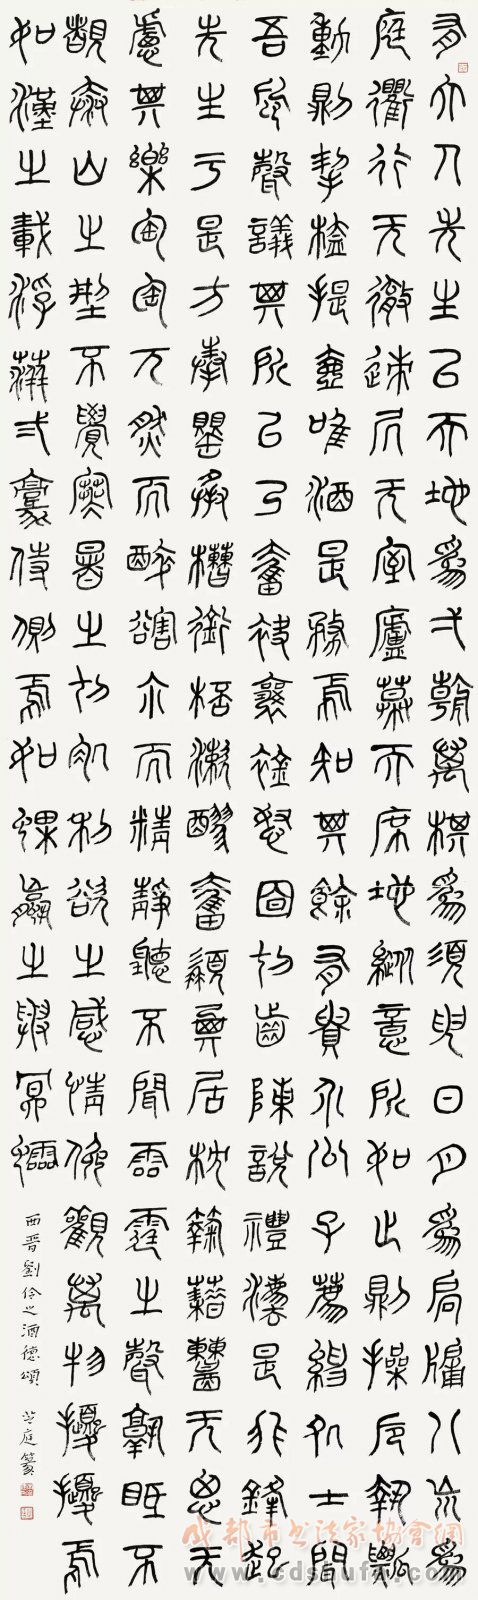 有大人先生以天地為弌朝萬期為須臾日月為扃牖八荒為
庭衢行无徹迹居无室廬幕天席地縱意所如止則操卮執觚
動則挈榼提壺唯酒是務焉知其餘有貴介公子薦紳處士聞
吾風聲議其所以乃奮袂攘襟怒目切齒陳說禮法是非鋒起
先生于是方捧罌承槽銜桮漱醪奮髯箕居枕麴藉糟无思无
慮其樂陶陶兀然而醉豁爾而醒靜聽不聞雷霆之聲孰視不
覩泰山之形不覺寒暑之切肌利欲之感情俯觀萬物擾擾焉
如漢之載浮萍弍豪侍側焉如蜾蠃之與螟蛉
西晉劉伶之酒德頌 芝庭篆
成都市书法家协会网